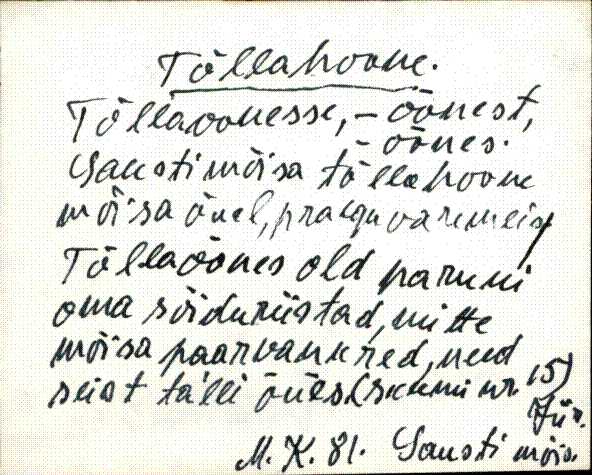 Tõllahoone.
Tõllaoonesse, – õõnest,
– õõnes.
Sausti mõisa tõllahoone
mõisa õuel, praegu varemeis
Tõllaõõnes old paruni
oma sõiduriistad, mitte
mõisa paarvankred, need
seist talli õues (skeemi nr. 15)
Jür.
M. K. 81. Sausti mõis.